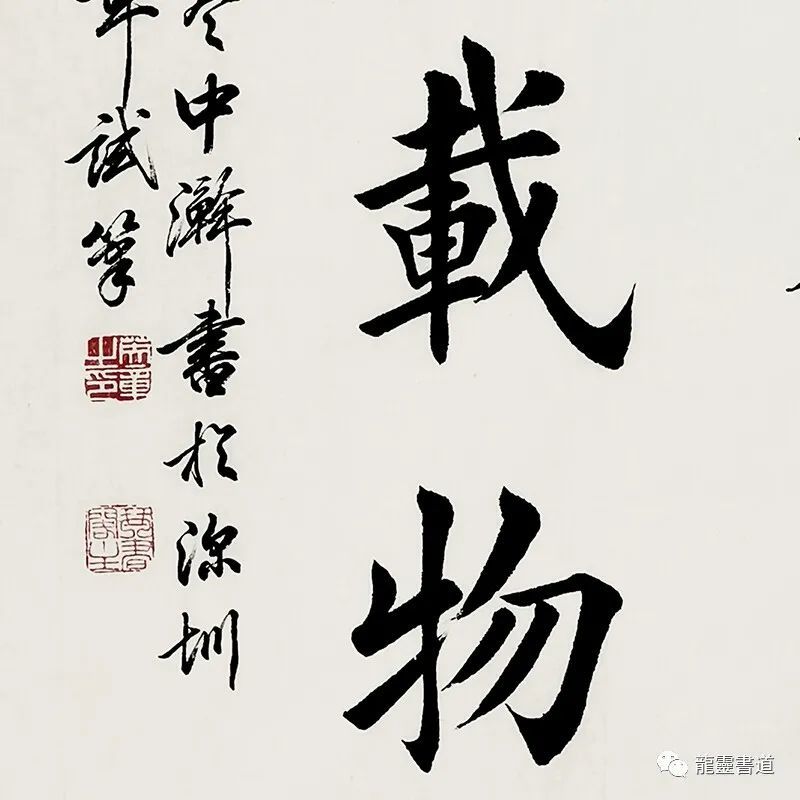 載物
中澣書於深圳
年試筆
龍靈書道